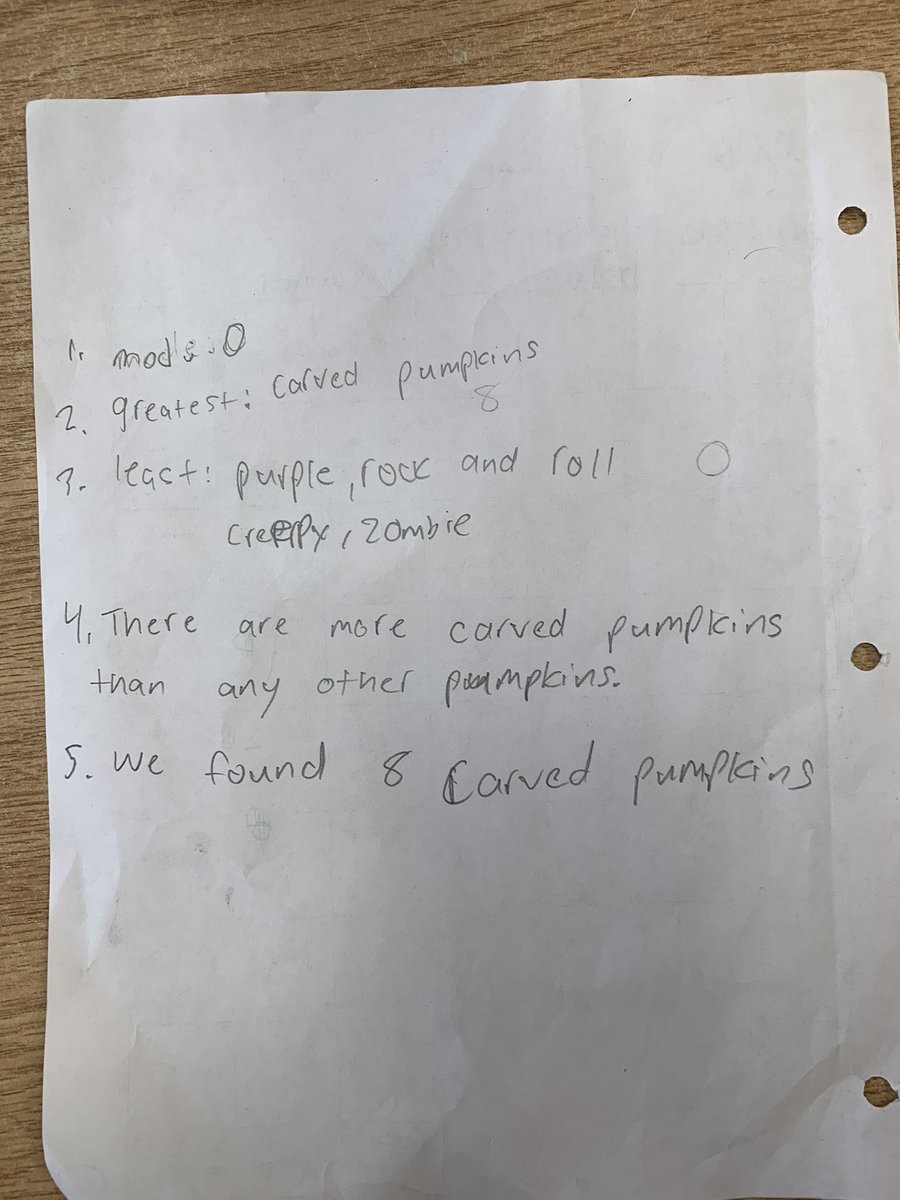 1. mode: 0
2. greatest: carved pumpkins
8
3. least: purple, rock and roll 0
creepy, zombie
4. There are more carved pumpkins
than any other pumpkins.
5. We found 8 carved pumpkins